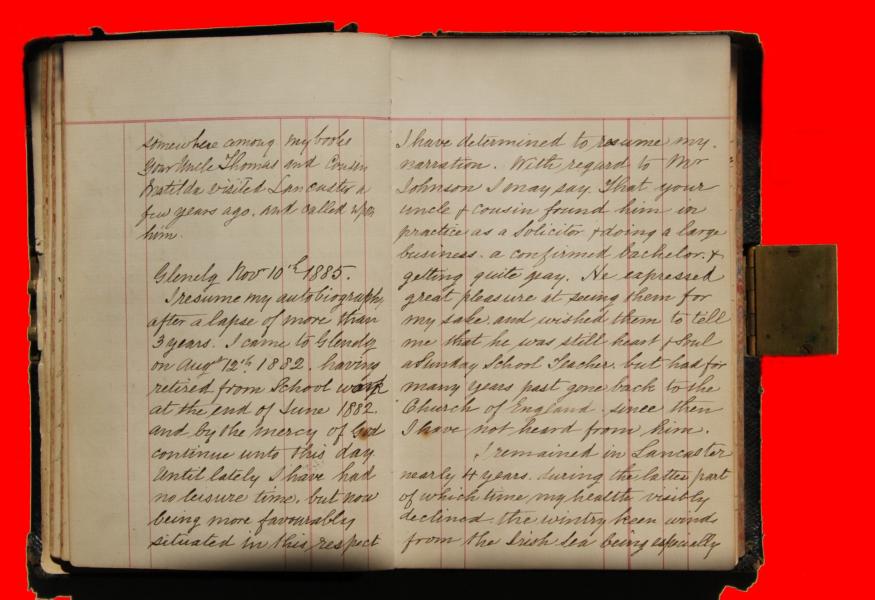 somewhere among my books
Your Uncle Thomas and Cousin
Matilda visited Lancaster a
few years ago, and called upon
him.
Glenelg Nov 10th 1885.
I resume my autobiography
after a lapse of more than
3 years. I came to Glenelg
on Augst 12th 1882. having
retired from School work
at the end of June 1882
and by the mercy of God
continue unto this day
Until lately I have had
no leisure time, but now
being more favourably
situated in this respect
I have determined to resume my
narration. With regard to Mr
Johnson I may say That your
uncle & cousin found him in
practice as a Solicitor & doing a large
business. a confirmed bachelor. &
getting quite gray. He expressed
great pleasure at seeing them for
my sake, and wished them to tell
me that he was still heart & Soul
a Sunday School Teacher. but had for
many years past gone back to the
Church of England. since then
I have not heard from him.
I remained in Lancaster
nearly 4 years. during the latter part
of which time, my health visibly
declined. the wintry keen winds
from the Irish Sea being especially